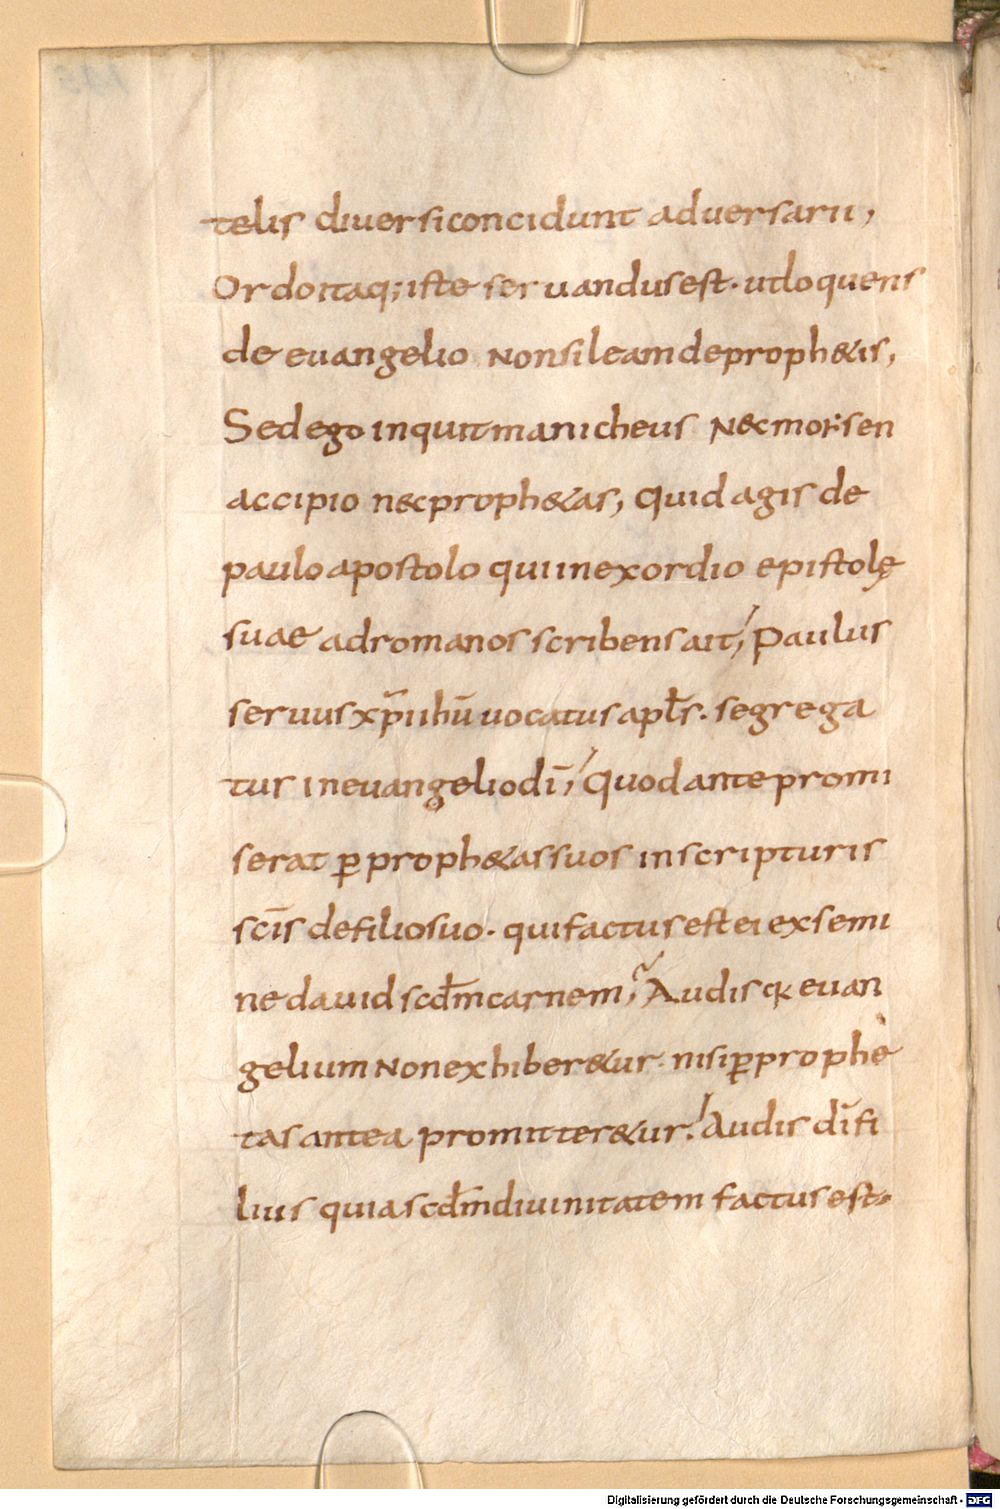 telis diuersi concidunt aduersarii,
Ordo itaq; iste seruandus est. ut loquens
de euangelio Non sileam de proph&is,
Sed ego inquit manicheus Nec moisen
accipio nec proph&as, Quid agis de
paulo apostolo qui in exordio epistolę
suae ad romanos scribens ait; Paulus
seruus xp̄i ihū uocatus apłs. segrega
tus in euangelio dī; Quod ante promi
serat ꝑ proph&as suos in scripturis
scīs de filio suo. qui factus est ei ex semi
ne dauid scd̄m carnem; Audis qđ euan
gelium Non exhiber&ur. nisi ꝑ prophe
tas antea promitter&ur. Audis dī fi
lius quia scd̄m diuinitatem factus est.
Digitalisierung gefördert durch die Deutsche Forschungsgemeinschaft - DFG